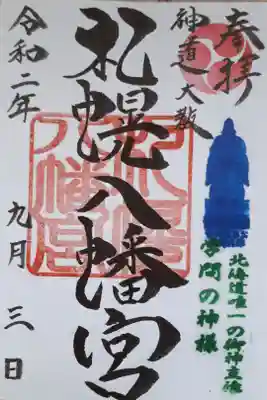 奉拝
神道大教
札幌八幡宮
北海道唯一の御神立像
学問の神様
令和二年
九月三日